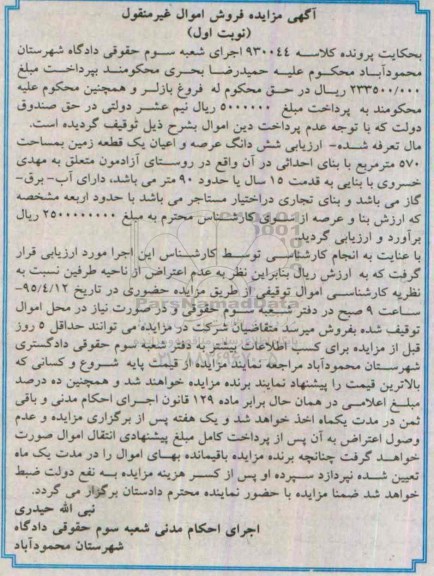 آگهی مزایده فروش اموال غیرمنقول
(نوبت اول)
بحکایت پرونده کلاسه ۹۳۰۰۴۴ اجرای شعبه سوم حقوقی دادگاه شهرستان
محمودآباد محکوم علیه حمیدرضا بحری محکومند بپرداخت مبلغ
۲۳۳۵۰۰/۰۰۰ ریال در حق محکوم له فروغ بازلر و همچنین محکوم علیه
محکومند به پرداخت مبلغ ۵۰۰۰۰۰۰ ریال نیم عشر دولتی در حق صندوق
دولت که با توجه عدم پرداخت دین اموال بشرح ذیل توقیف گردیده است.
مال تعرفه شده- ارزیابی شش دانگ عرصه و اعیان یک قطعه زمین بمساحت
۵۷۰ مترمربع با بنای احداثی در آن واقع در روستای آزادمون متعلق به مهدی
خسروی با بنایی به قدمت ۱۵ سال یا حدود ۹۰ متر می باشد، دارای آب- برق-
گاز می باشد و بنای تجاری دراختیار مستاجر می باشد با حدود اربعه مشخصه
که ارزش بنا و عرصه از سوی کارشناس محترم به مبلغ ۲۵۰۰۰۰۰۰۰۰ ریال
برآورد و ارزیابی گردید.
با عنایت به انجام کارشناسی توسط کارشناس این اجرا مورد ارزیابی قرار
گرفت که به ارزش ریال بنابراین نظر به عدم اعتراض از ناحیه طرفین نسبت به
نظریه کارشناسی اموال توقیفی از طریق مزایده حضوری در تاریخ ۹۵/۴/۱۲-
ساعت ۹ صبح در دفتر شعبه سوم حقوقی و در صورت نیاز در محل اموال
توقیف شده بفروش میرسد متقاضیان شرکت در مزایده می توانند حداقل ۵ روز
قبل از مزایده برای کسب اطلاعات بیشتر به دفتر شعبه سوم حقوقی دادگستری
شهرستان محمودآباد مراجعه نمایند مزایده از قیمت پایه شروع و کسانی که
بالاترین قیمت را پیشنهاد نمایند برنده مزایده خواهند شد و همچنین ده درصد
مبلغ اعلامی در همان حال برابر ماده ۱۲۹ قانون اجرای احکام مدنی و باقی
ثمن در مدت یکماه اخذ خواهد شد و یک هفته پس از برگزاری مزایده و عدم
وصول اعتراض به آن پس از پرداخت کامل مبلغ پیشنهادی انتقال اموال صورت
خواهد گرفت چنانچه برنده مزایده باقیمانده بهای اموال را در مدت یک ماه
تعیین شده نپردازد سپرده او پس از کسر هزینه مزایده به نفع دولت ضبط
خواهد شد ضمنا مزایده با حضور نماینده محترم دادستان برگزار می گردد.
نبی الله حیدری
اجرای احکام مدنی شعبه سوم حقوقی دادگاه
شهرستان محمودآباد
ParsNamadData